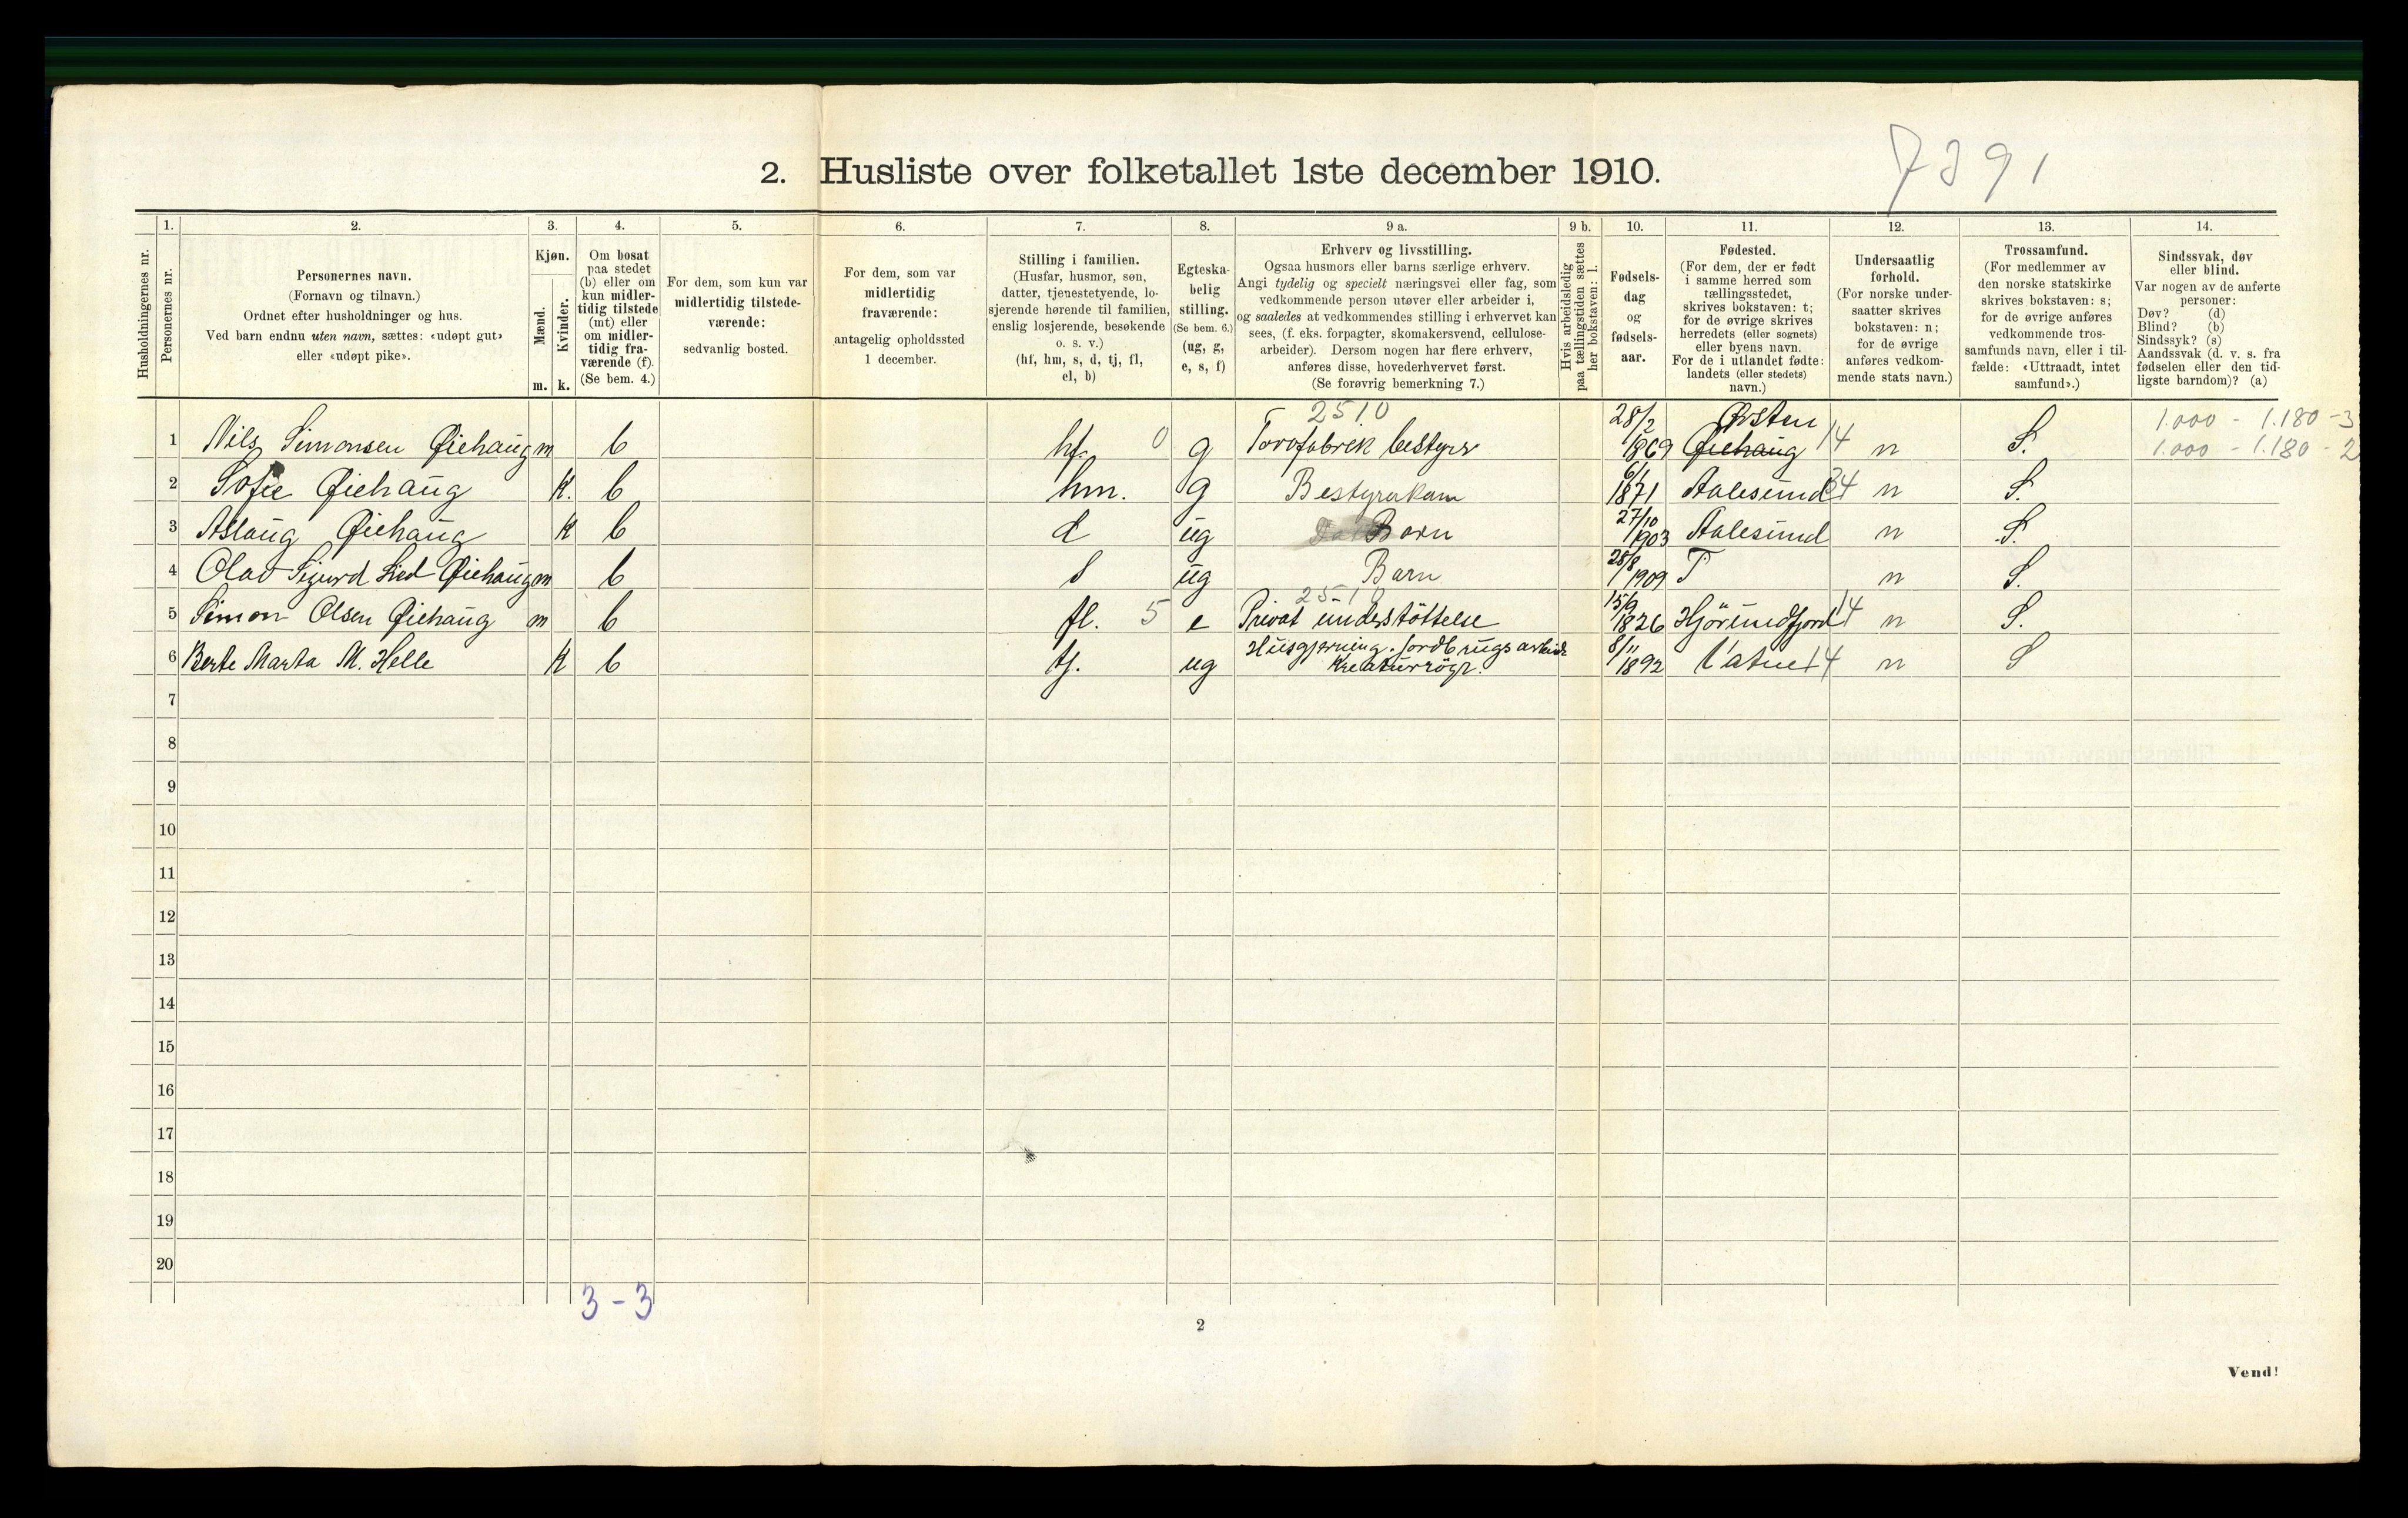 7391
2. Husliste over folketallet 1ste december 1910.
1. 2. 3. 4. 5. 6. 7. 8. 9 a. 9 b. 10. 11. 12. 13. 14.
Husholdningernes nr.
Personernes nr.
Personernes navn.
(Fornavn og tilnavn.)
Ordnet efter husholdninger og hus.
Ved barn endnu uten navn, sættes: «udøpt gut»
eller «udøpt pike».
Kjøn.
Mænd.
Kvinder.
m. k.
Om bosat
paa stedet
(b) eller om
kun midler-
tidig tilstede
(mt) eller
om midler-
tidig fra-
værende (f).
(Se bem. 4.)
For dem, som kun var
midlertidig tilstede-
værende:
sedvanlig bosted.
For dem, som var
midlertidig
fraværende:
antagelig opholdssted
1 december.
Stilling i familien.
(Husfar, husmor, søn,
datter, tjenestetyende, lo-
sjerende hørende til familien,
enslig losjerende, besøkende
o. s. v.)
(hf, hm, s, d, tj, fl,
el, b)
Egteska-
belig
stilling.
(Se bem. 6.)
(ug, g,
e, s, f)
Erhverv og livsstilling.
Ogsaa husmors eller barns særlige erhverv.
Angi tydelig og specielt næringsvei eller fag, som
vedkommende person utøver eller arbeider i,
og saaledes at vedkommendes stilling i erhvervet kan
sees, (f. eks. forpagter, skomakersvend, cellulose-
arbeider). Dersom nogen har flere erhverv,
anføres disse, hovederhvervet først.
(Se forøvrig bemerkning 7.)
Hvis arbeidsledig
paa tællingstiden sættes
her bokstaven: l.
Fødsels-
dag
og
fødsels-
aar.
Fødested.
(For dem, der er født
i samme herred som
tællingsstedet,
skrives bokstaven: t;
for de øvrige skrives
herredets (eller sognets)
eller byens navn.
For de i utlandet fødte:
landets (eller stedets)
navn.)
Undersaatlig
forhold.
(For norske under-
saatter skrives
bokstaven: n;
for de øvrige
anføres vedkom-
mende stats navn.)
Trossamfund.
(For medlemmer av
den norske statskirke
skrives bokstaven: s;
for de øvrige anføres
vedkommende tros-
samfunds navn, eller i til-
fælde: «Uttraadt, intet
samfund».)
Sindssvak, døv
eller blind.
Var nogen av de anførte
personer:
Døv? (d)
Blind? (b)
Sindssyk? (s)
Aandssvak (d. v. s. fra
fødselen eller den tid-
ligste barndom)? (a)
2510 28/2 Ørsten 1.000 - 1.180 - 3
1 Nils Simonsen Øiehaug m b hf. 0 g Torvfabrik bestyrer 1869 Øiehaug 14 n S. 1.000 - 1.180 - 2
2 Sofie Øiehaug k. b hm. g 6/1 1871 Aalesund 34 n S.
3 Aslaug Øiehaug k b d ug Barn 27/10 1903 Aalesund n S.
4 Olav Sigurd Øiehaug m b s ug Barn 28/8 1909 T n S.
2510
5 Simon Olsen Øiehaug m b fl. 5 e Privat understöttelse 15/9 1826 Hjörundfjord 14 n S.
6 Berte Marta M. Helle k b tj. ug Husgjerning. Jordbrugsarbeide 8/11 1892 Vatne 14 n S
Kreaturrögt.
7
8
9
10
11
12
13
14
15
16
17
18
19
20
3 - 3
2
Vend!